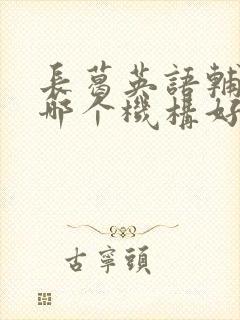 長葛英語輔
哪个機構好
古寧頭